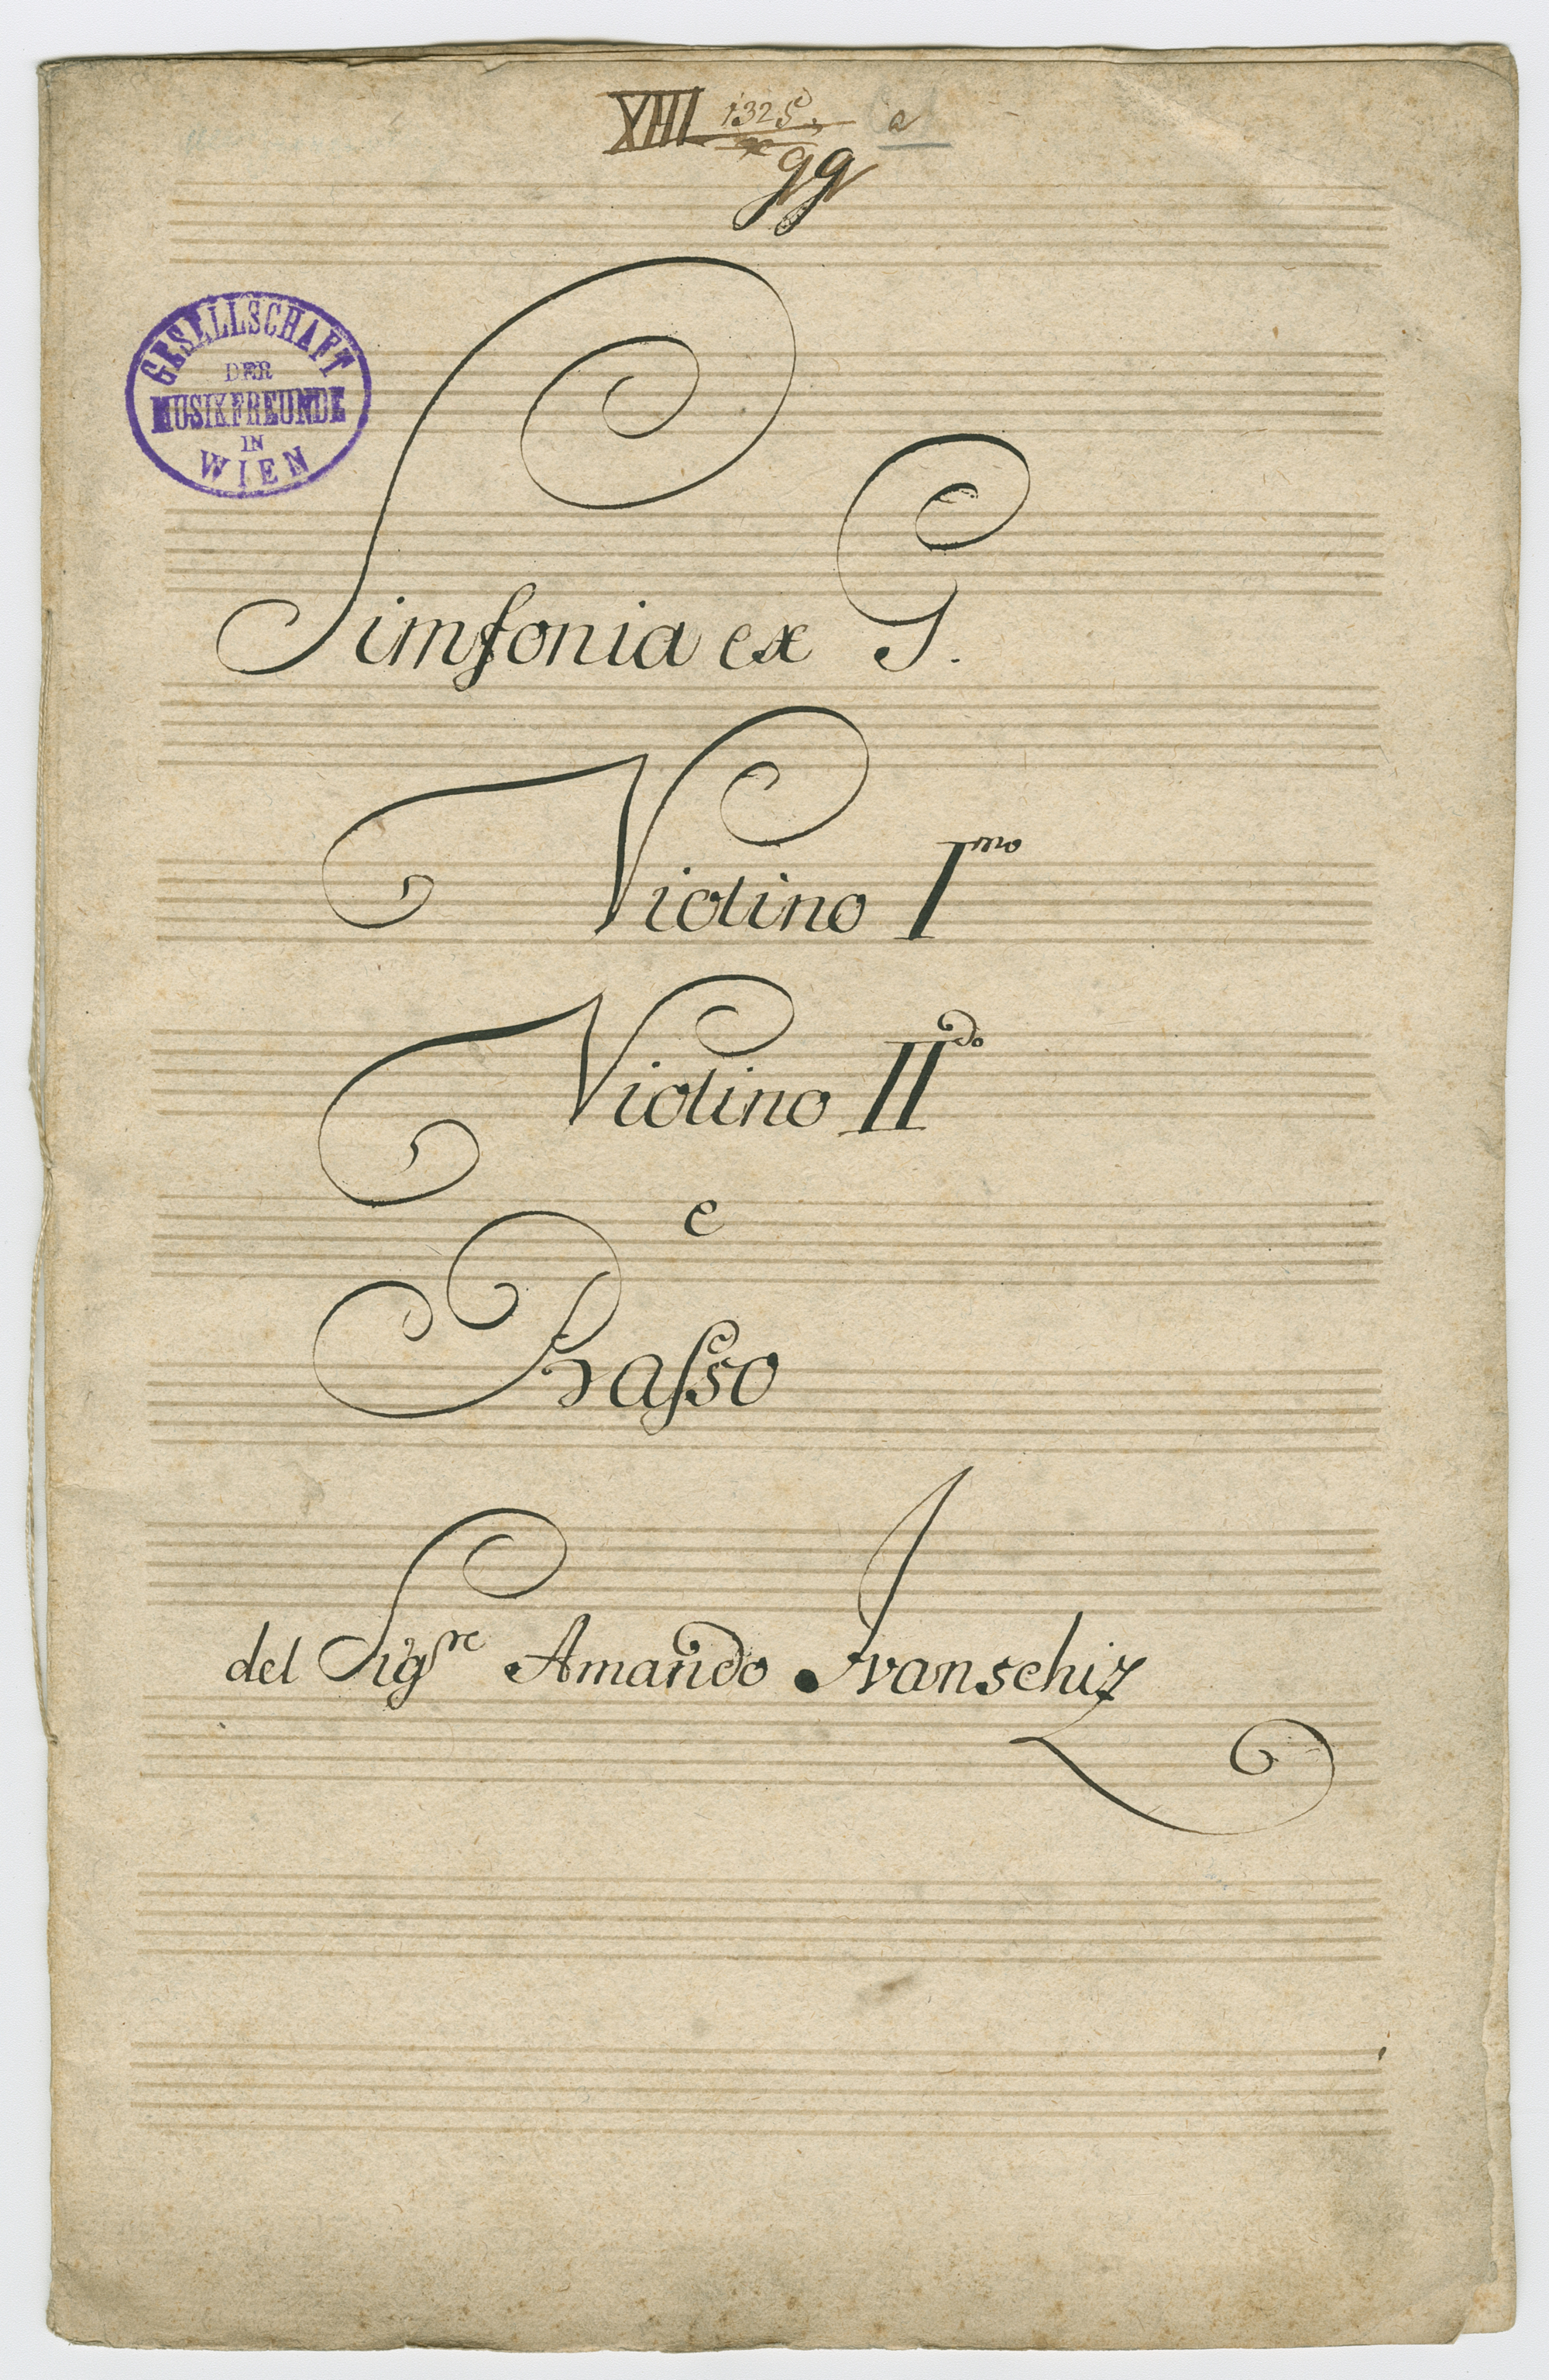 XIII 1325 a
gg
GESELLSCHAFT
DER
MUSIKFREUNDE
IN
WIEN
Simfonia ex G.
Violino Imo
Violino IIdo
e
Basso
del Sigre Amando Ivanschiz